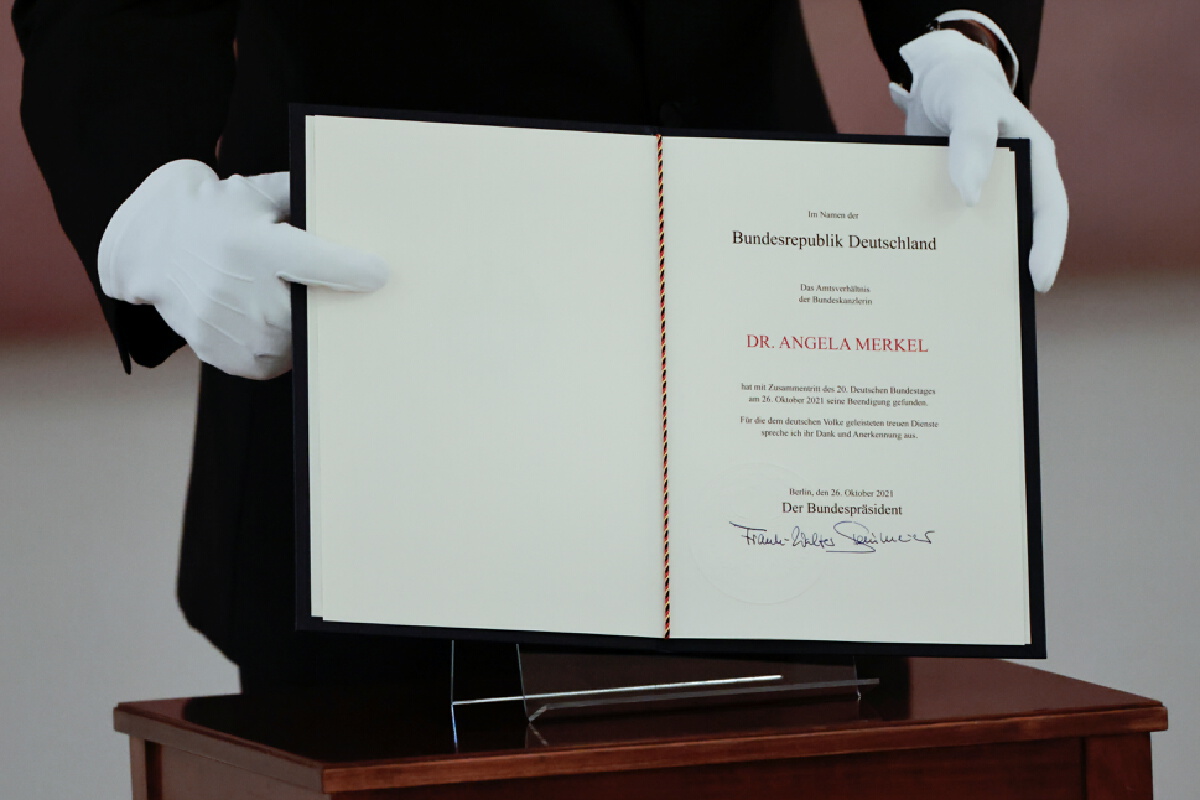 Im Namen der
Bundesrepublik Deutschland
Das Amtsverhältnis
der Bundeskanzlerin
DR. ANGELA MERKEL
hat mit Zusammentritt des 20. Deutschen Bundestages
am 26. Oktober 2021 seine Beendigung gefunden.
Für die dem deutschen Volke geleisteten treuen Dienste
spreche ich ihr Dank und Anerkennung aus.
Berlin, den 26. Oktober 2021
Der Bundespräsident
Frank-Walter Steinmeier